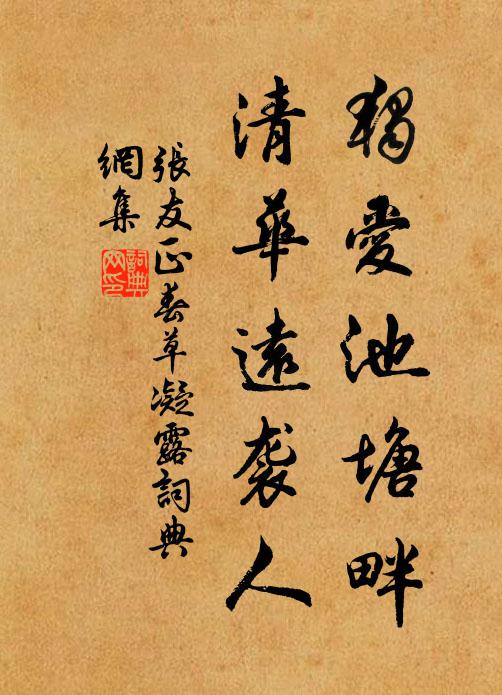 獨愛池塘畔
清華遠袭人
張友正春草凝露詞典
網集
詞典網印